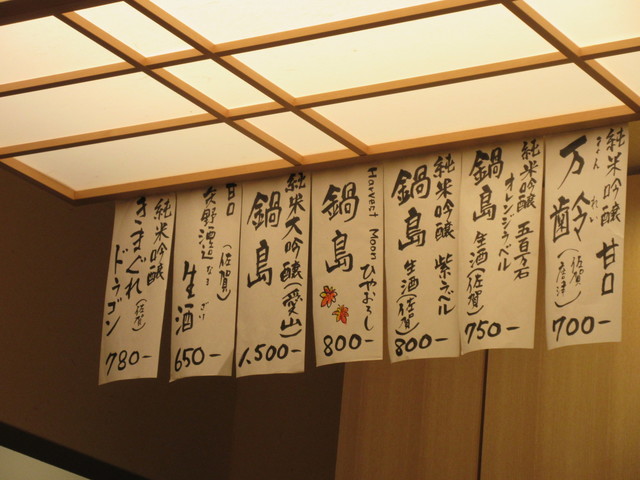 純米吟醸 甘口
まん れい
万齢
(佐賀)
(唐津)
700-
純米吟醸 五百万石
オレンジラベル
鍋島
生酒(佐賀)
750-
純米吟醸 紫ラベル
鍋島
生酒(佐賀)
800-
Harvest Moon ひやおろし
鍋島
800-
純米大吟醸(愛山)
鍋島
1,500-
甘口
(佐賀)
生酒
650-
純米吟醸
(佐賀)
きまぐれ
ドラゴン
780-